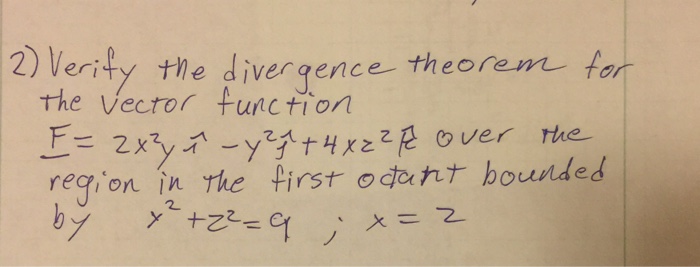 2) Verify the divergence theorem for
the vector function
F = 2x²y î - y² ĵ + 4xz² k̂ over the
region in the first octant bounded
by x² + z² = 9 ; x = 2